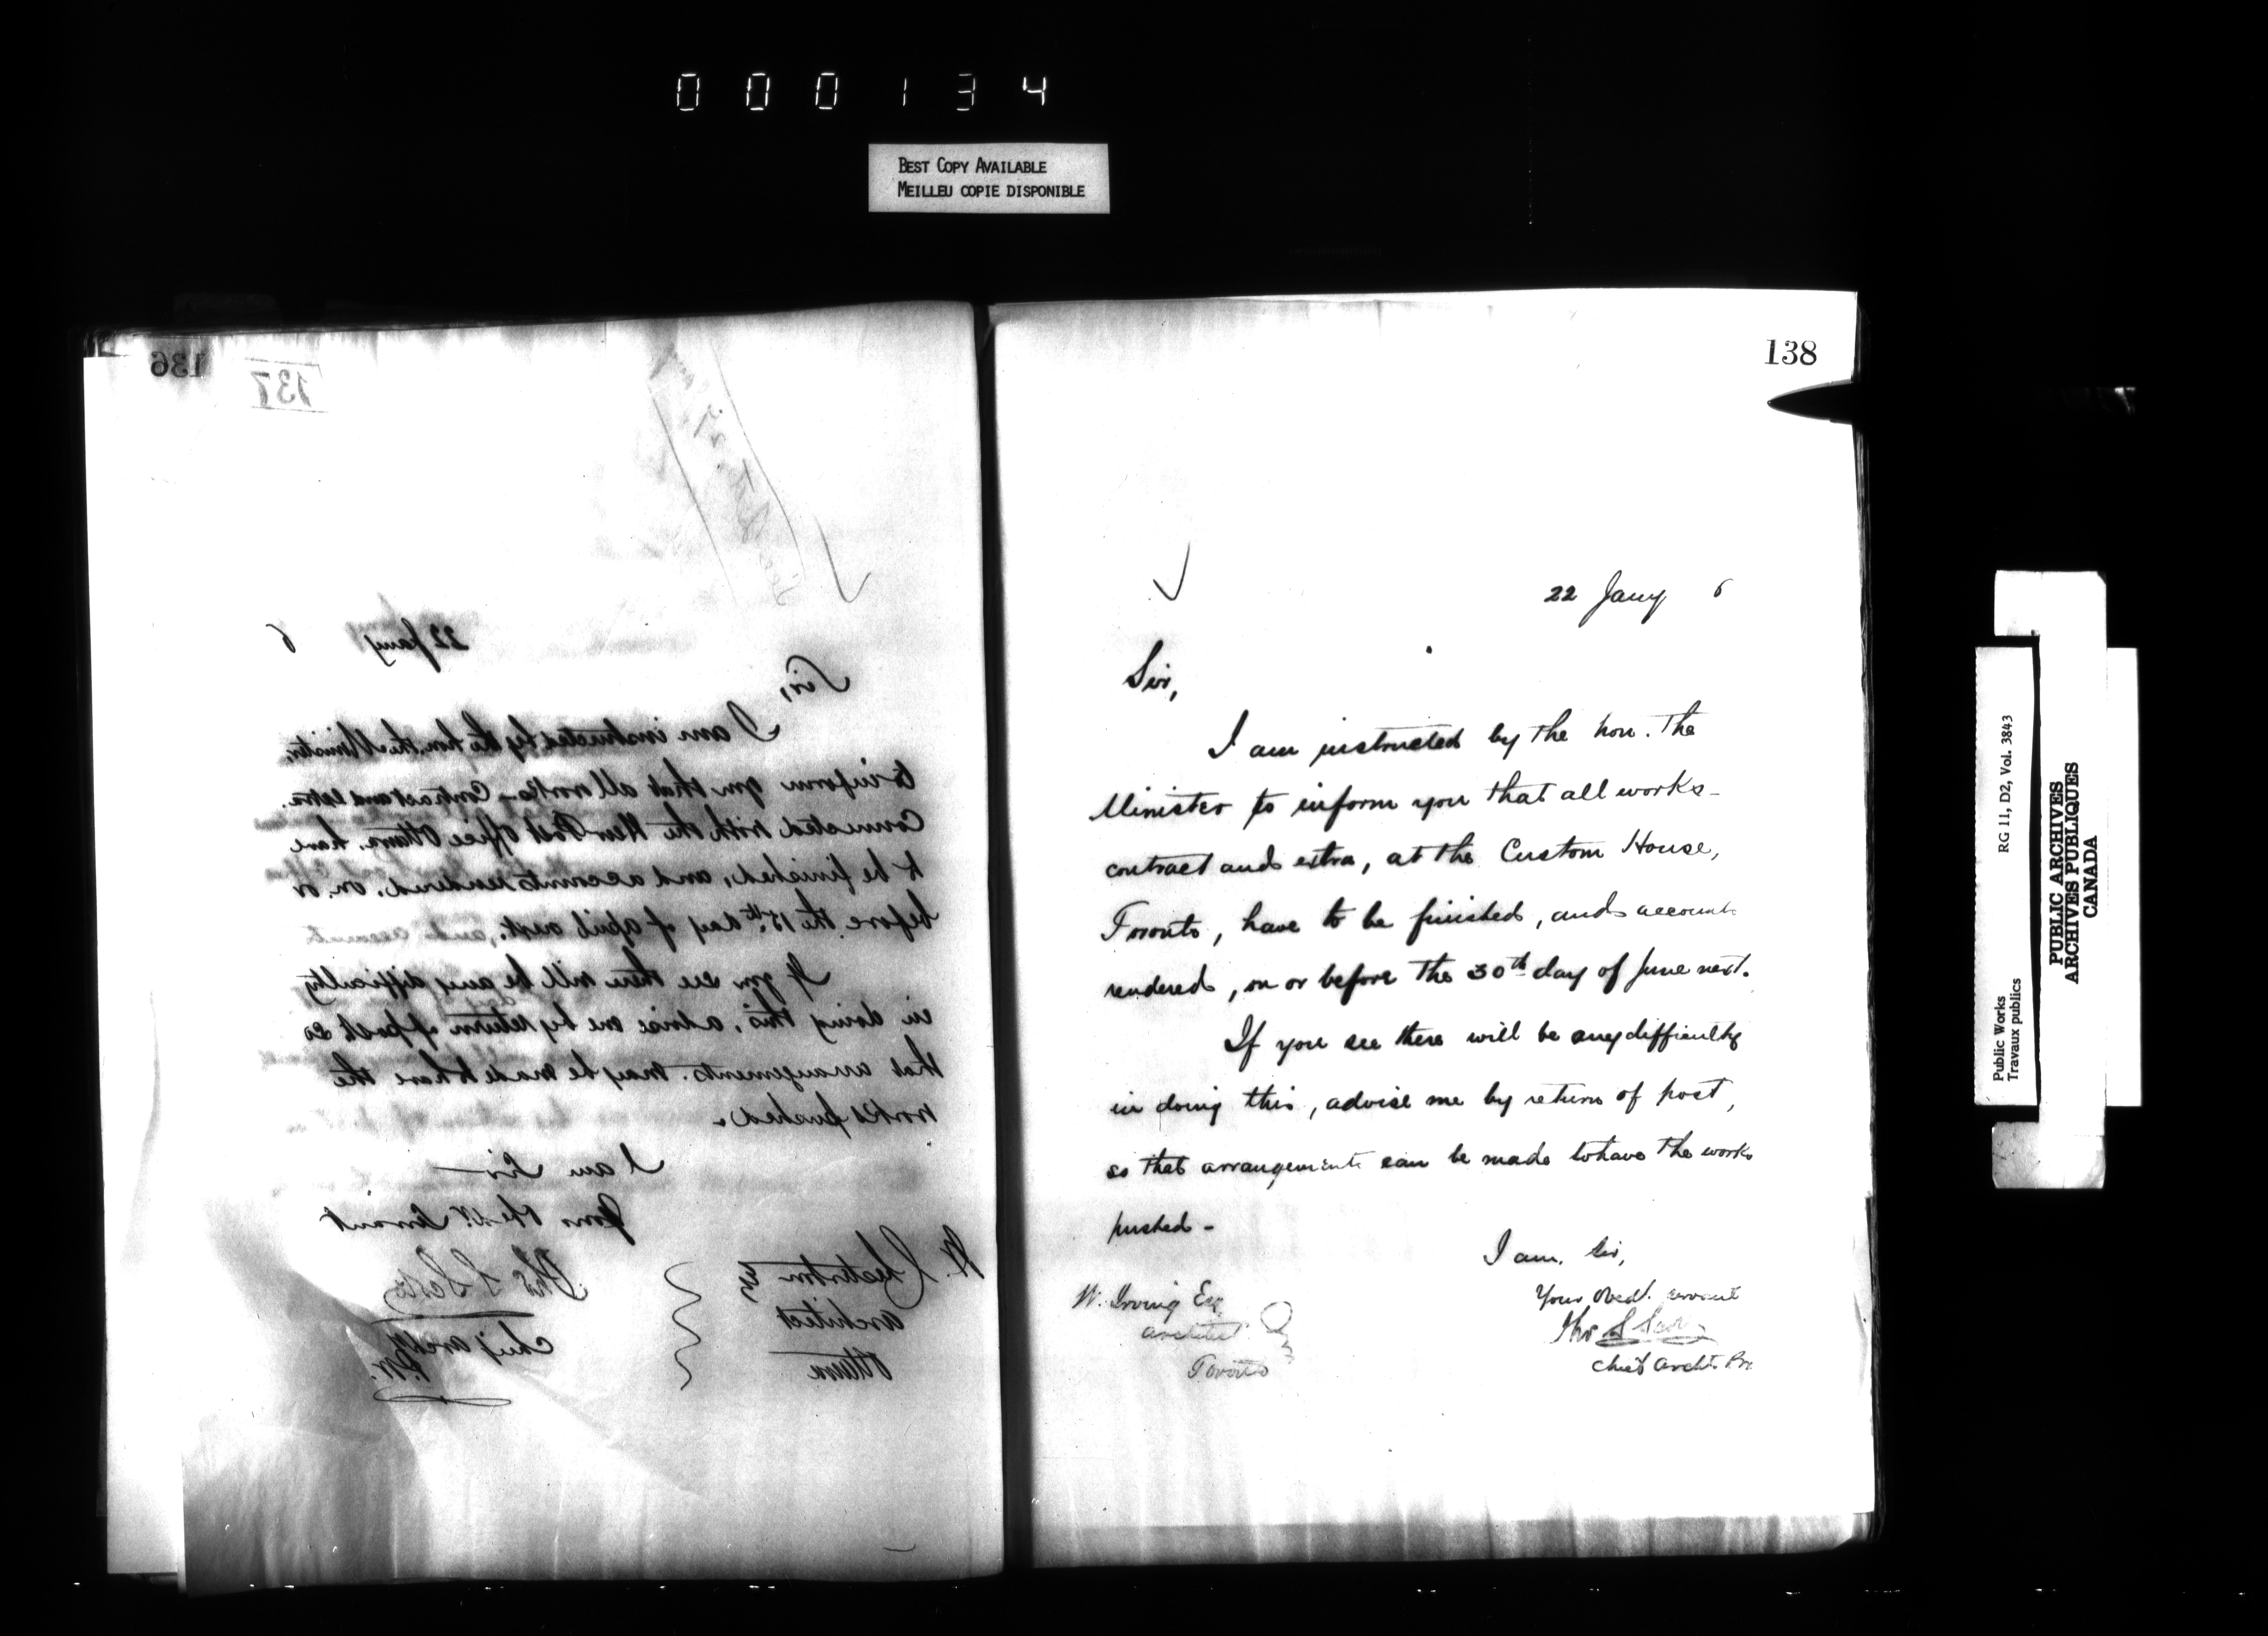 000134
BEST COPY AVAILABLE
MEILLEU COPIE DISPONIBLE
136
137
22 Jany 6
Sir,
I am instructed by the hon. the Minister,
to inform you that all works - Contract and extra.
Connected with the New Post Office Ottawa. have
to be finished, and accounts rendered. on or
before the 15th day of April next.
If you see there will be any difficulty
in doing this, advise me by return of post so
that arrangements may be made to have the
works pushed.
I am Sir
Your Obedt. Servant
Thos S Scott
Chief Archt
P.W.
W. Chesterton Esq
Architect
Ottawa
138
22 Jany 6
Sir,
I am instructed by the hon. the
Minister to inform you that all works -
contract and extra, at the Custom House,
Toronto, have to be finished, and accounts
rendered, on or before the 30th day of June next.
If you see there will be any difficulty
in doing this, advise me by return of post,
so that arrangements can be made to have the works
pushed -
I am, Sir,
Your Obedt. servant
Thos S Scott
Chief Archt. P.W.
W. Irving Esq.
Architect
Toronto
Public Works
Travaux publics
RG 11, D2, Vol. 3843
PUBLIC ARCHIVES
ARCHIVES PUBLIQUES
CANADA